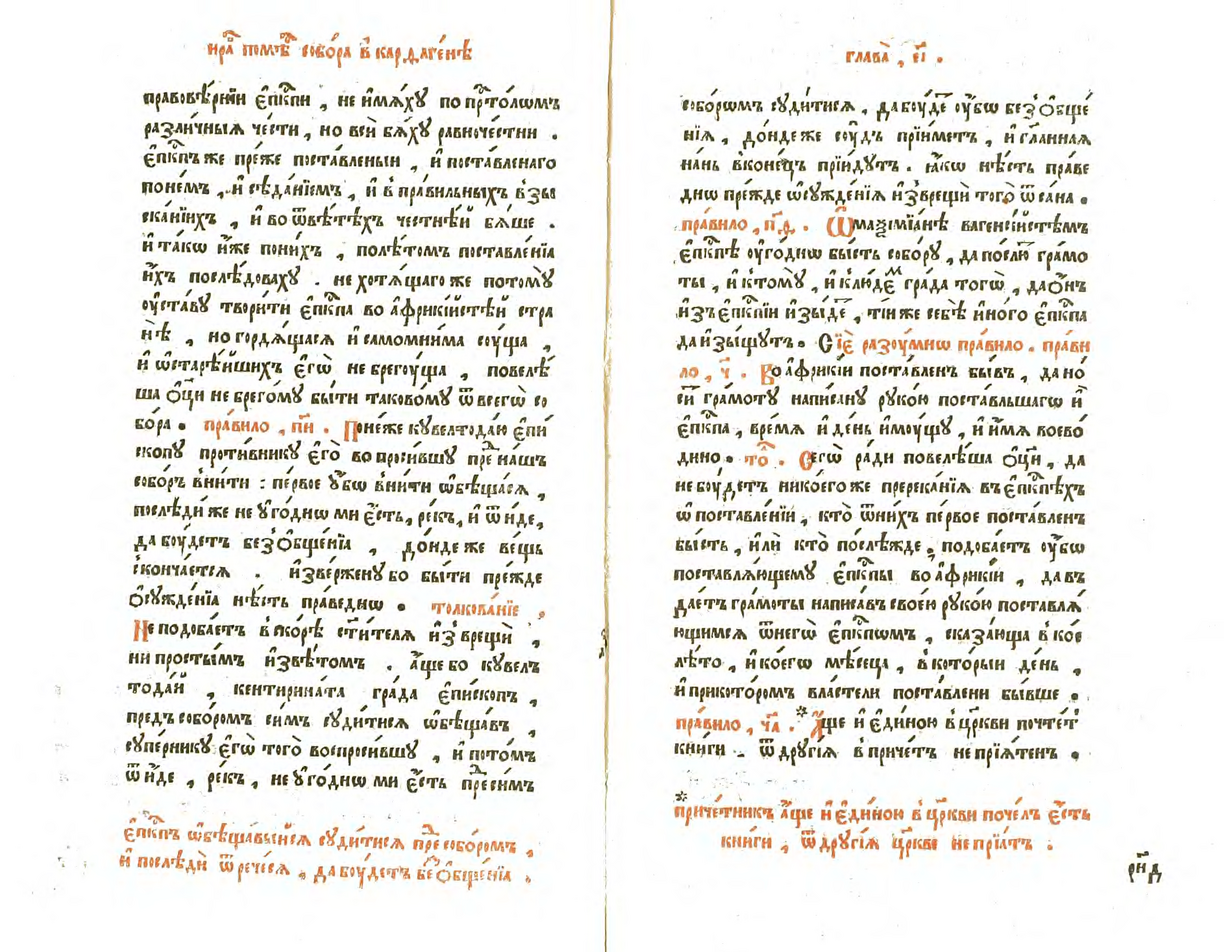 и҆рⷧ҇а помѣⷭ҇ собо́ра в̾ кардаге́нѣ
правовѣ́рнїи є҆пⷭ҇кпи , не и҆мѧ́хꙋ по прⷭ҇то́лѡмъ
разли́чныѧ че́сти , но всѝ бѧ́хꙋ равноче́стни .
є҆пⷭ҇кпъ же пре́же поста́вленыи , и҆ поста́вленаго
поне́мъ , и҆ сѣда́нїемъ , и҆ в̾ пра́вильныхъ в̾зы
ска́нїихъ , и҆ во ѿвѣ́тѣхъ честнѣ́и бѧ́ше .
и҆ та́кѡ и҆́же пони́хъ , полѣ́томъ поставле́нїа
и҆́хъ послѣ́довахꙋ . не хотѧ́щаго же потомꙋ̀
оу҆ста́вꙋ твори́ти є҆пⷭ҇кпа во а҆фрикі́йстѣи стра
нѣ̀ , но гордѧ́щасѧ и҆ самомни́ма соу́ща ,
и҆ ѡ҆старѣ́йшихъ є҆гѡ̀ не брегоу́ща , повелѣ́
ша ѻ҆ц҃ы не брего́мꙋ бы́ти таково́мꙋ ѿ всегѡ̀ со
бо́ра . пра́вило , пи҃ . Поне́же кꙋвелтода́ю є҆пи́
скопꙋ проти́вникꙋ є҆гѡ̀ во проси́вшꙋ преⷣ на́шъ
собо́ръ вни́ти : пе́рвое ᲂу҆́бѡ вни́ти ѡ҆бѣща́сѧ ,
послѣди́ же не ᲂу҆го́днѡ ми є҆́сть , ре́къ , и҆ ѿи́де ,
да бꙋ́детъ без̾ ѻ҆бще́нїа , до́нде же ве́щь
скончае́тсѧ . и҆зве́рженꙋ бо бы́ти пре́жде
ѻ҆сꙋжде́нїа нѣ́сть пра́веднѡ . толкова́нїе .
Не подоба́етъ вско́рѣ ст҃и́телѧ и҆з̾врещѝ ,
ни просты́мъ и҆звѣ́томъ . а҆́ще бо кꙋвел
тода́й , кентирина́та гра́да є҆пи́скопъ ,
предъ собо́ромъ си́мъ сꙋди́тисѧ ѡ҆бѣща́въ ,
сꙋпе́рникꙋ є҆гѡ̀ того̀ воспроси́вшꙋ , и҆ пото́мъ
ѿи́де , ре́къ , не ᲂу҆го́днѡ ми є҆́сть преⷣ си́мъ
є҆пⷭ҇кпъ ѡ҆бѣща́выйсѧ сꙋди́тисѧ преⷣ собо́ромъ ,
и҆ послѣдѝ ѿрече́сѧ , да бꙋ́детъ беⷥ ѻ҆бще́нїа .
глава̀ , є҃і .
собо́рѡмъ сꙋди́тисѧ , да бꙋ́деⷮ ᲂу҆́бѡ без̾ ѻ҆бще́
нїѧ , до́нде же сꙋ́дъ прїи́метъ , и҆ гл҃аннаѧ
на́нь вконе́цъ прїи́дꙋтъ . ꙗ҆́кѡ нѣ́сть пра́ве
днѡ пре́жде ѡ҆сꙋжде́нїѧ и҆зврещѝ того̀ ѿ са́на .
пра́вило , п҃ѳ . Ѡ҆ маѯимїа́нѣ вагенсі́йстѣмъ
є҆пⷭ҇кпѣ ᲂу҆го́днѡ бы́сть собо́рꙋ , да по́слю грамо
ты , и҆ ктомꙋ̀ , и҆ к̾ лю́деⷨ гра́да тогѡ̀ , да ѻ҆́нъ
и҆зъ є҆пⷭ҇кпїи и҆зы́деⷮ , ті́и же себѣ̀ и҆но́го є҆пⷭ҇кпа
да и҆зы́щꙋтъ . Сїѐ разꙋ́мнѡ пра́вило . прави
ло , ч҃ . Во а҆фрикі́и поста́вленъ бы́въ , да но́
ситъ гра́мотꙋ напи́санꙋ рꙋко́ю поста́вльшагѡ и҆̀
є҆пⷭ҇кпа , вре́мѧ и҆ де́нь и҆мꙋ́щꙋ , и҆ и҆́мѧ воево́
дино . тоⷧ҇ . Сегѡ̀ ра́ди повелѣ́ша ѻ҆ц҃ы , да
не бꙋ́детъ никоего́же пререка́нїѧ въ є҆пⷭ҇кпѣхъ
ѡ҆ поставле́нїи , кто̀ ѿ ни́хъ пе́рвое поста́вленъ
бы́сть , и҆лѝ кто̀ послѣ́жде , подоба́етъ ᲂу҆́бѡ
поставлѧ́ющемꙋ є҆пⷭ҇кпы во а҆фрикі́и , да въ
дае́тъ гра́моты написа́въ свое́ю рꙋко́ю поставлѧ́
ющимсѧ ѿ негѡ̀ є҆пⷭ҇кпѡмъ , сказа́юща в̾ ко́е
лѣ́то , и҆ ко́егѡ мѣ́сеца , в̾ кото́рыи де́нь ,
и҆ при кото́ромъ вла́стели поста́влени бы́вше .
пра́вило , ч҃а . * А҆́ще и҆ є҆ди́ною в̾ цр҃кви почте́тъ
кни́ги . ѿ дрꙋгі́ѧ в̾ при́четъ не прїѧ́тенъ .
* при́четникъ а҆́ще и҆ є҆ди́ною в̾ цр҃кви поче́лъ є҆́сть
кни́ги , ѿ дрꙋгі́ѧ цр҃кве не прїѧ́тъ .
рн҃д